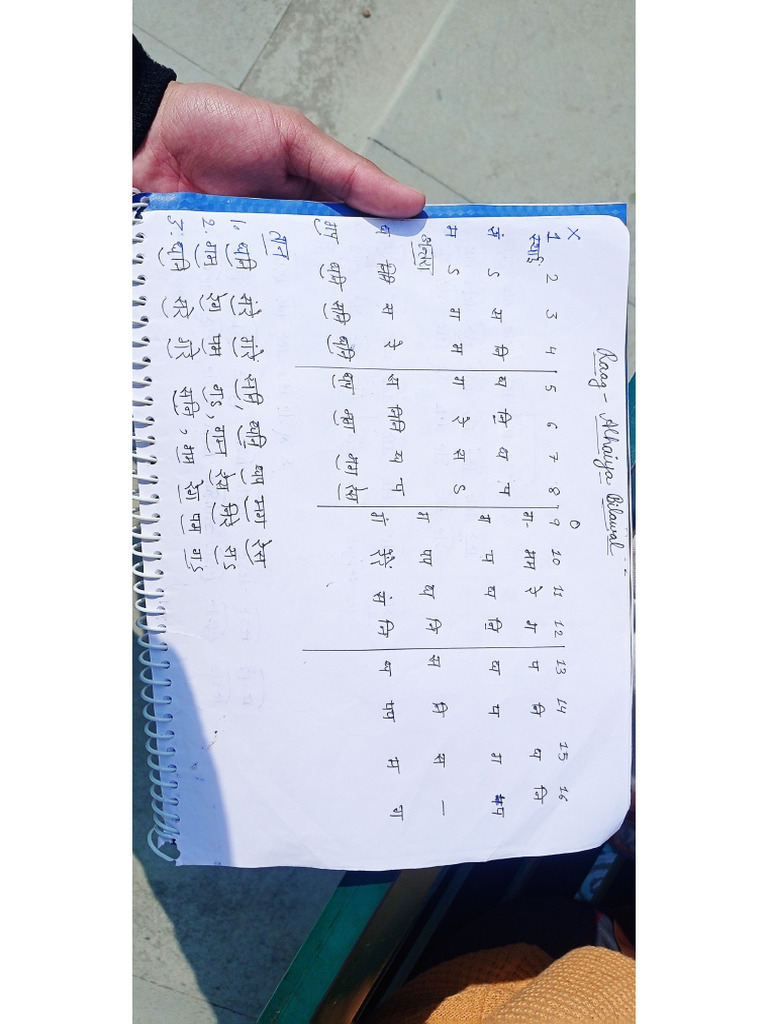 Raag - Alhaiya Bilawal
X 0
1 2 3 4 5 6 7 8 9 10 11 12 13 14 15 16
स्थाई ग- मग रे ग प नि ध नि
सं ऽ स नि ध नि ध प म प ध नि ध प ग मप
म ऽ ग म ग रे स ऽ
अन्तरा ग पप ध नि स नि स —
ध निनि स रे स निनि ध प गं रेंरें सं नि ध पप म ग
गप धनि सनि धनि धप मप मग रेस
तान
1. धनि संरें गंरें सानि, धनि धप मग रेस
2. गम रेग पम गऽ, गम रेस निरे सऽ
3. धनि सरे गरे सानि, गम रेग पम गऽ